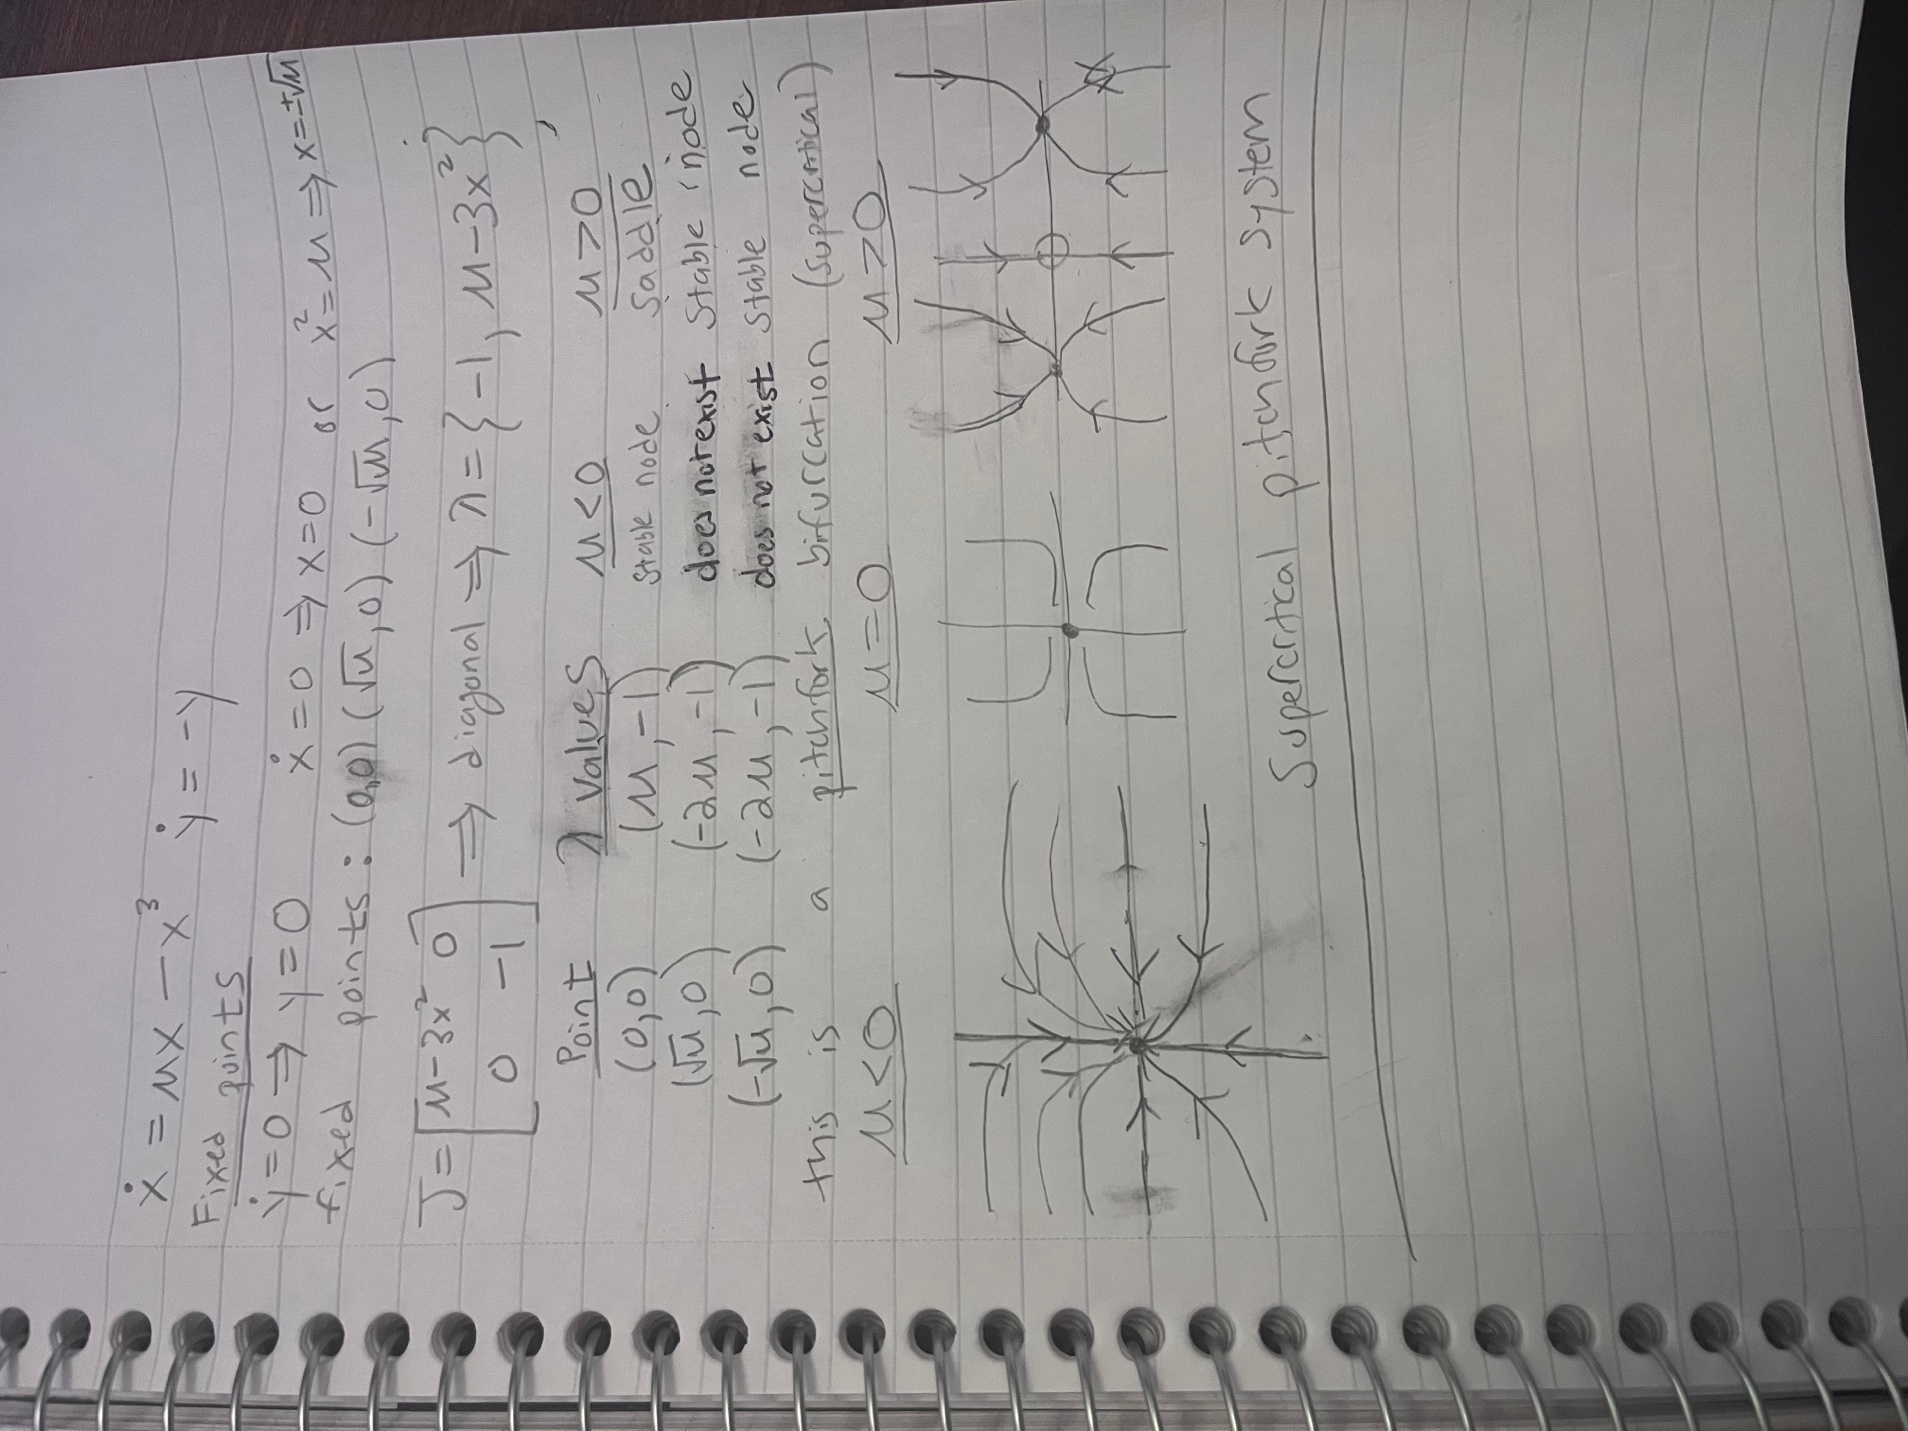 ẋ = μx − x³   ẏ = −y
Fixed points
ẏ = 0 ⇒ y = 0   ẋ = 0 ⇒ x = 0 or x² = μ ⇒ x = ±√μ
fixed points: (0,0) (√μ, 0) (−√μ, 0)
J = [μ−3x² 0
0 −1] ⇒ diagonal ⇒ λ = {−1, μ−3x²}
Point   λ values   μ<0   μ>0
(0,0)   (μ, −1)   stable node   saddle
(√μ, 0)   (−2μ, −1)   does not exist   stable node
(−√μ, 0)   (−2μ, −1)   does not exist   stable node
this is a pitchfork bifurcation (supercritical)
μ<0   μ=0   μ>0
Supercritical pitchfork system